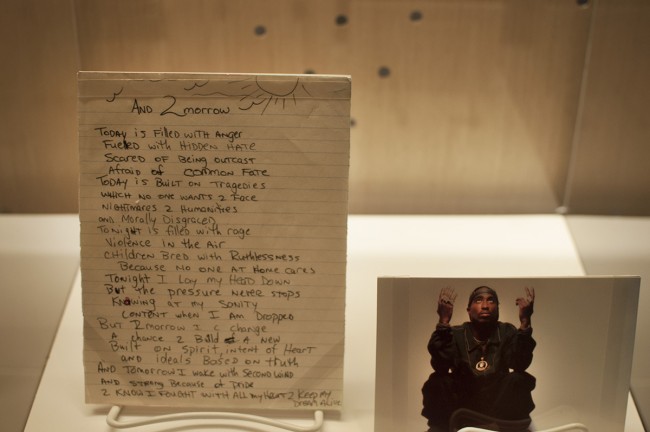 AND 2morrow
TODAY is Filled with ANGER
Fueled with Hidden Hate
Scared of Being outcast
Afraid of Common Fate
TODAY is Built on Tragedies
which no one wants 2 Face
Nightmares 2 Humanities
and Morally Disgraced
Tonight is filled with rage
Violence in the Air
Children Bred with Ruthlessness
Because no one at Home cares
Tonight I Lay my Head Down
But the pressure never stops
Knawing at my Sanity
content when I am Dropped
But 2morrow I c change
A chance 2 Build a new
Built on spirit, intent of Heart
and ideals Based on truth
And Tomorrow I wake with Second Wind
And strong Because of Pride
2 know I Fought with all my Heart 2 Keep my
Dream Alive